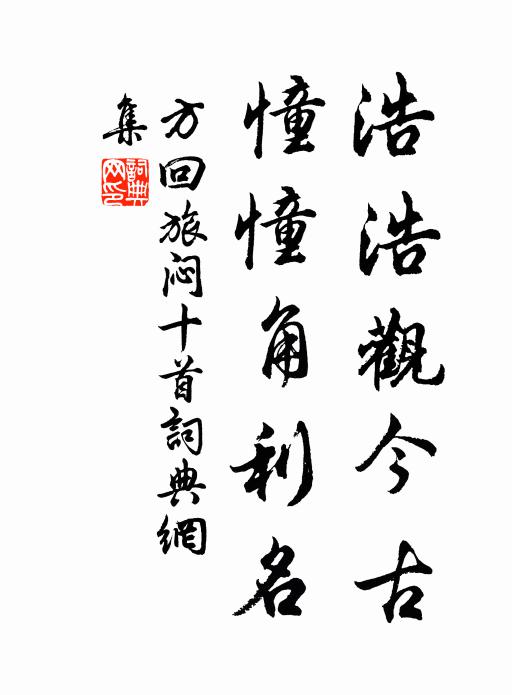 浩浩觀今古
憧憧角利名
方回旅闷十首詞典網
集
詞典
网印